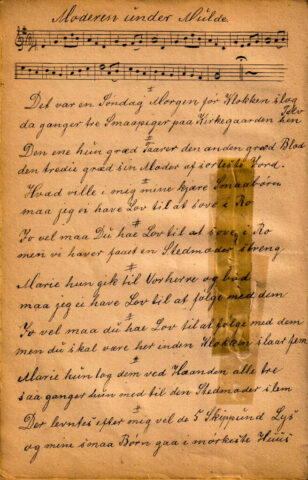 Moderen under Mulde.
Det var en Søndag Morgen før Klokken slog Tolv
da ganger tre Smaapiger paa Kirkegaarden hen
Den ene hun græd Taarer den anden græd Blod
den tredie græd sin Moder af sorteste Jord.
Hvad ville i mig mine kjære Smaabørn
maa jeg ei have Lov til at sove i Ro
Jo vel maa Du hae Lov til at sove i Ro
men vi haver faaet en Stedmoder streng
Marie hun gik til Vorherre og bad
maa jeg ei have Lov til at følge med dem
Jo vel maa du hae Lov til at følge med dem
men du skal være her inden Klokken slaar fem
Marie hun tog dem ved Haanden alle tre
saa ganger hun med til den Stedmoder slem
Der levntes efter mig vel de 5 Skippund Lys
og mine smaa Børn gaa i mørkeste Huus